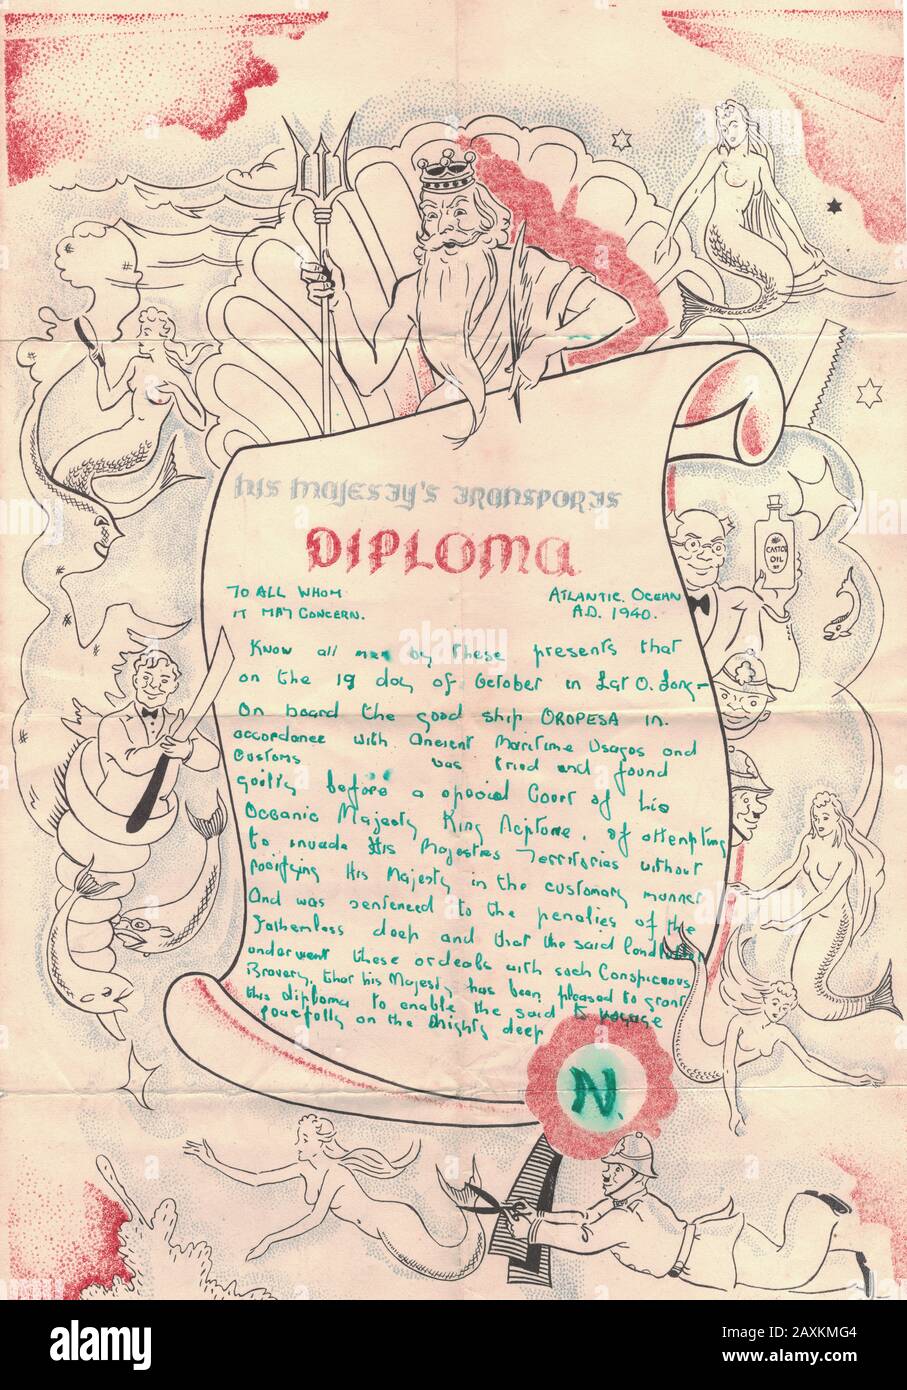 HIS MAJESTY'S TRANSPORTS
DIPLOMA
TO ALL WHOM
IT MAY CONCERN.
ATLANTIC OCEAN
A.D. 1940.
CASTOR
OIL
Know all men by these presents that
on the 19 day of October in Lat O. Long -
On board the good ship OROPESA in.
accordance with Ancient Maritime Usages and
Customs was tried and found
guilty before a special Court of his
Oceanic Majesty King Neptune. of attempting
to invade His Majesties Territories without
notifying His Majesty in the customary manner
And was sentenced to the penalties of the
Fathomless deep and that the said landlubber
underwent these ordeals with such Conspicuous
Bravery, that his Majesty has been pleased to grant
this diploma to enable the said to voyage
peacefully on the Mighty deep
N.
alamy
Image ID: 2AXKMG4
www.alamy.com